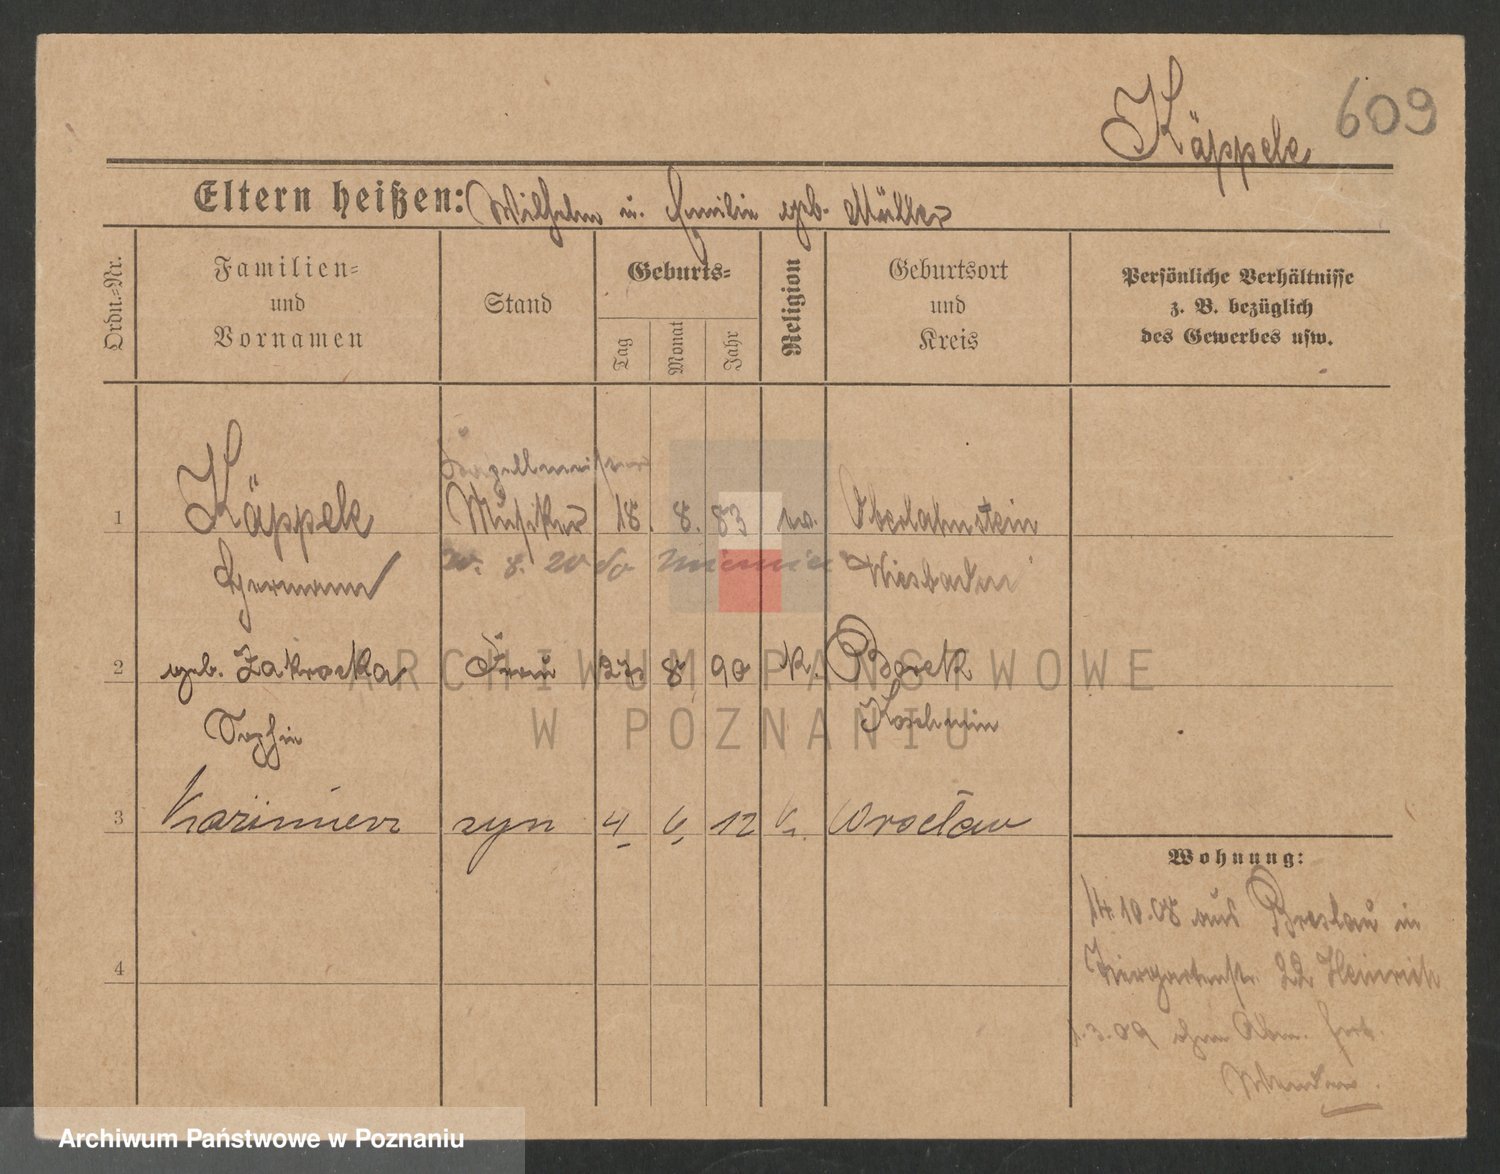 609
Käppele
Eltern heißen: Wilhelm u. Emilie geb. Müller
Ordn.-Nr.
Familien-
und
Vornamen
Stand
Geburts-
Tag
Monat
Jahr
Religion
Geburtsort
und
Kreis
Persönliche Verhältnisse
z. B. bezüglich
des Gewerbes usw.
Kapellmeister
1 Käppele Musiker 18. 8. 83 Oberlahnstein
Hermann Wiesbaden
2 geb. Zakrocka Frau 27 8 90 k. Borek
Sophie Koschmin
3 Kazimierz syn 4 6 12 k. Wrocław
4
Wohnung:
14.10.08 aus Breslau in
Tiergartenstr. 22 Heinrich
1.3.09 ohne Abm. fort.
ARCHIWUM PAŃSTWOWE
W POZNANIU
Archiwum Państwowe w Poznaniu